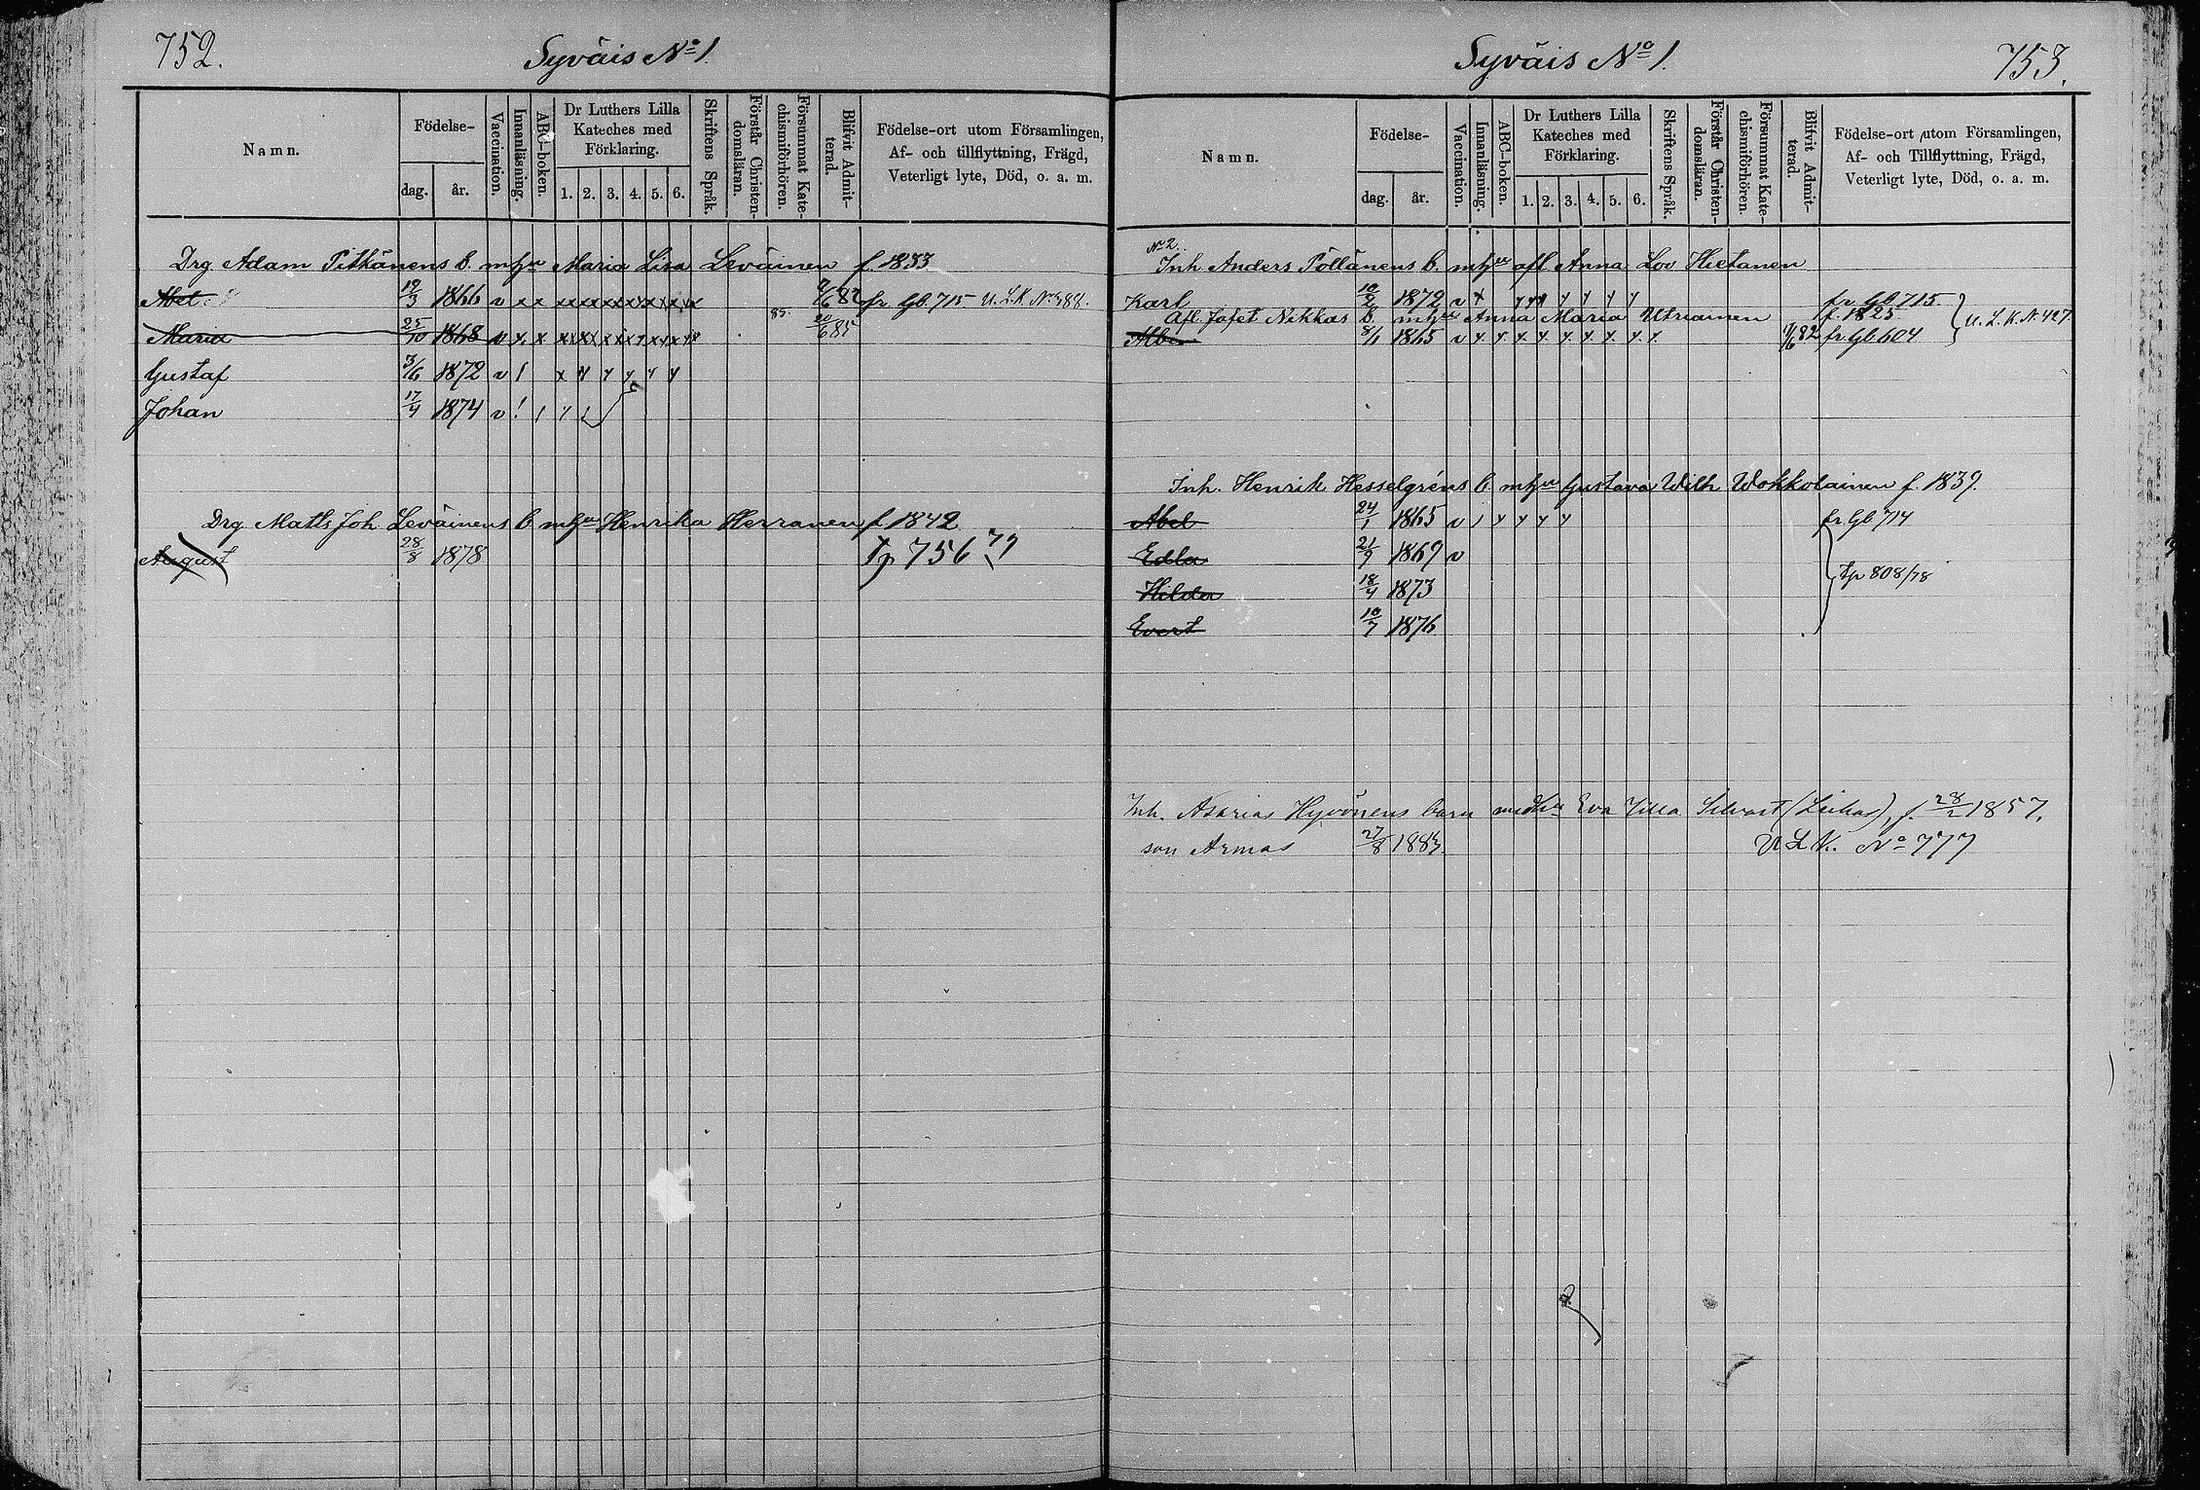 752.
Syväis No 1.
Namn.
Födelse-
dag.
år.
Vaccination.
Innanläsning.
ABC-boken.
Dr Luthers Lilla
Kateches med
Förklaring.
1. 2. 3. 4. 5. 6.
Skriftens Språk.
Förstår Christen-
domsläran.
Försummat Kate-
chismiförhören.
Blifvit Admit-
terad.
Födelse-ort utom Församlingen,
Af- och tillflyttning, Frägd,
Veterligt lyte, Död, o. a. m.
Drg. Adam Pitkänens b. mhu Maria Lisa Leväinen f. 1833
Abel 19/3 1866 v x x x x x x x x x x x x x 82 fr. Gb. 715 U. L. K. No 388.
Maria 25/10 1868 v x x x x x x x x x x x x 85. 20/6 85
Gustaf 3/6 1872 v / x x y y y y
Johan 17/4 1874 v ! / y /
Drg. Matts Joh. Leväinens b. mhu Henrika Herranen f. 1842
August 28/8 1878 Tp 756 79
Syväis No 1.
753.
Namn.
Födelse-
dag.
år.
Vaccination.
Innanläsning.
ABC-boken.
Dr Luthers Lilla
Kateches med
Förklaring.
1. 2. 3. 4. 5. 6.
Skriftens Språk.
Förstår Christen-
domsläran.
Försummat Kate-
chismiförhören.
Blifvit Admit-
terad.
Födelse-ort utom Församlingen,
Af- och Tillflyttning, Frägd,
Veterligt lyte, Död, o. a. m.
No 2.
Inh. Anders Pöllänens b. mhu afl. Anna Lov. Hietanen
Karl 10/2 1872 v x y y y y y y y fr. Gb. 715.
Afl. Jafet Nikkas b. mhu Anna Maria Utriainen f. 1825
8/1 1865 v y y y y y y y y y 82 fr. Gb. 604 U. L. K. N. 427
Inh. Henrik Hesselgréns b. mhu Gustava Wilh. Wokkolainen f. 1839.
Abel 24/1 1865 v / y y y y fr. Gb. 714
Edla 21/9 1869 v
Hilda 18/4 1873 Tp 808/78
Evert 10/7 1876
Inh. Asarias Hyvönens barn med hu Eva Ulla Silvast (Liikas), f. 28/2 1857.
son Armas 27/8 1883 U L K. No 777